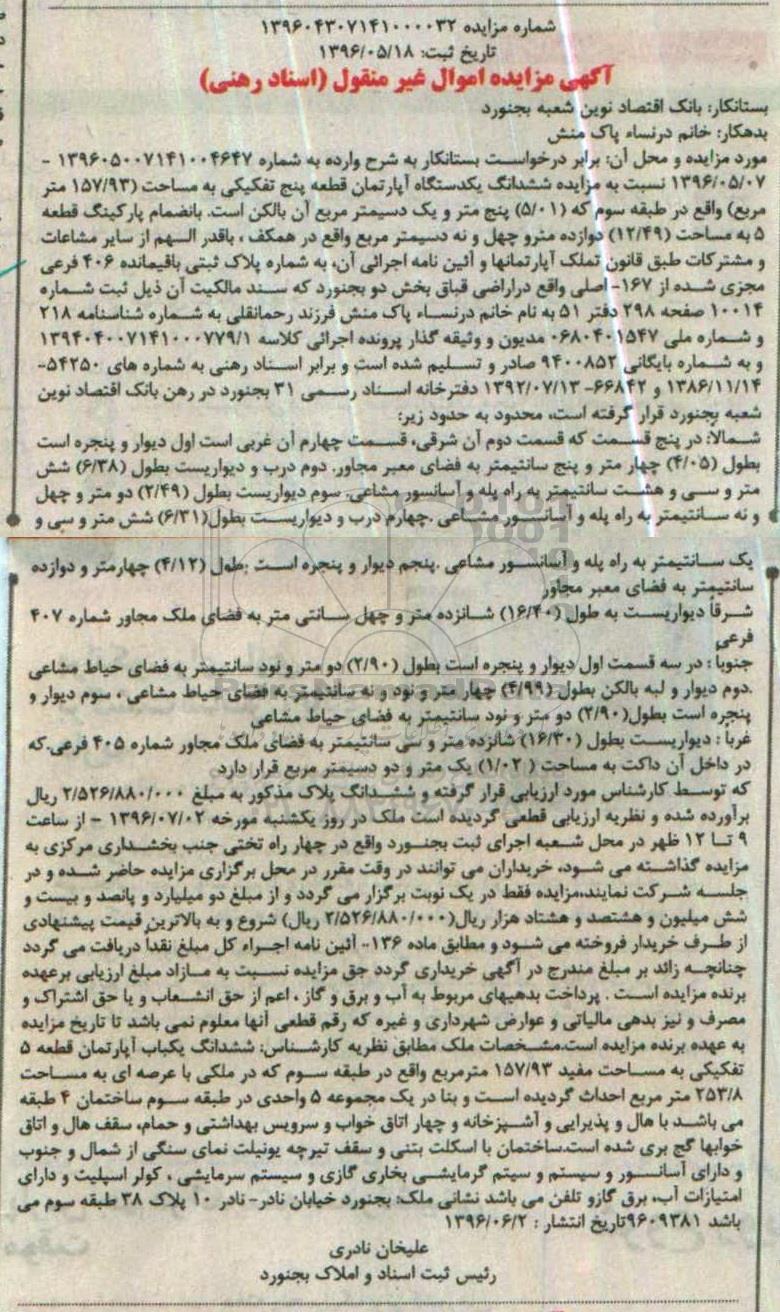 شماره مزایده ۱۳۹۶۰۴۳۰۷۱۴۱۰۰۰۰۳۲
تاریخ ثبت: ۱۳۹۶/۰۵/۱۸
آگهی مزایده اموال غیر منقول (اسناد رهنی)
بستانکار: بانک اقتصاد نوین شعبه بجنورد
بدهکار: خانم درنساء پاک منش
مورد مزایده و محل آن: برابر درخواست بستانکار به شرح وارده به شماره ۱۳۹۶۰۵۰۰۷۱۴۱۰۰۴۶۴۷ -
۱۳۹۶/۰۵/۰۷ نسبت به مزایده ششدانگ یکدستگاه آپارتمان قطعه پنج تفکیکی به مساحت (۱۵۷/۹۳ متر
مربع) واقع در طبقه سوم که (۵/۰۱) پنج متر و یک دسیمتر مربع آن بالکن است. بانضمام پارکینگ قطعه
۵ به مساحت (۱۲/۴۹) دوازده مترو چهل و نه دسیمتر مربع واقع در همکف ، باقدر السهم از سایر مشاعات
و مشترکات طبق قانون تملک آپارتمانها و آئین نامه اجرائی آن، به شماره پلاک ثبتی باقیمانده ۴۰۶ فرعی
مجزی شده از ۱۶۷- اصلی واقع دراراضی قباق بخش دو بجنورد که سند مالکیت آن ذیل ثبت شماره
۱۰۰۱۴ صفحه ۲۹۸ دفتر ۵۱ به نام خانم درنساء پاک منش فرزند رحمانقلی به شماره شناسنامه ۲۱۸
و شماره ملی ۰۶۸۰۴۰۱۵۴۷ مدیون و وثیقه گذار پرونده اجرائی کلاسه ۱۳۹۴۰۴۰۰۷۱۴۱۰۰۰۷۷۹/۱
و به شماره بایگانی ۹۴۰۰۸۵۲ صادر و تسلیم شده است و برابر اسناد رهنی به شماره های ۵۴۲۵۰-
۱۳۸۶/۱۱/۱۴ و ۶۶۸۴۲- ۱۳۹۲/۰۷/۱۳ دفترخانه اسناد رسمی ۳۱ بجنورد در رهن بانک اقتصاد نوین
شعبه بجنورد قرار گرفته است، محدود به حدود زیر:
شمالاً: در پنج قسمت که قسمت دوم آن شرقی، قسمت چهارم آن غربی است اول دیوار و پنجره است
بطول (۴/۰۵) چهار متر و پنج سانتیمتر به فضای معبر مجاور. دوم درب و دیواریست بطول (۶/۳۸) شش
متر و سی و هشت سانتیمتر به راه پله و آسانسور مشاعی. سوم دیواریست بطول (۲/۴۹) دو متر و چهل
و نه سانتیمتر به راه پله و آسانسور مشاعی .چهارم درب و دیواریست بطول(۶/۳۱) شش متر و سی و
یک سانتیمتر به راه پله و آسانسور مشاعی .پنجم دیوار و پنجره است بطول (۴/۱۲) چهارمتر و دوازده
سانتیمتر به فضای معبر مجاور
شرقاً دیواریست به طول (۱۶/۴۰) شانزده متر و چهل سانتی متر به فضای ملک مجاور شماره ۴۰۷
فرعی
جنوبا : در سه قسمت اول دیوار و پنجره است بطول (۲/۹۰) دو متر و نود سانتیمتر به فضای حیاط مشاعی
.دوم دیوار و لبه بالکن بطول (۴/۹۹) چهار متر و نود و نه سانتیمتر به فضای حیاط مشاعی ، سوم دیوار و
پنجره است بطول(۲/۹۰) دو متر و نود سانتیمتر به فضای حیاط مشاعی
غربا : دیواریست بطول (۱۶/۳۰) شانزده متر و سی سانتیمتر به فضای ملک مجاور شماره ۴۰۵ فرعی.که
در داخل آن داکت به مساحت ( ۱/۰۲) یک متر و دو دسیمتر مربع قرار دارد
که توسط کارشناس مورد ارزیابی قرار گرفته و ششدانگ پلاک مذکور به مبلغ ۲/۵۲۶/۸۸۰/۰۰۰ ریال
برآورده شده و نظریه ارزیابی قطعی گردیده است ملک در روز یکشنبه مورخه ۱۳۹۶/۰۷/۰۲ - از ساعت
۹ تا ۱۲ ظهر در محل شعبه اجرای ثبت بجنورد واقع در چهار راه تختی جنب بخشداری مرکزی به
مزایده گذاشته می شود، خریداران می توانند در وقت مقرر در محل برگزاری مزایده حاضر شده و در
جلسه شرکت نمایند،مزایده فقط در یک نوبت برگزار می گردد و از مبلغ دو میلیارد و پانصد و بیست و
شش میلیون و هشتصد و هشتاد هزار ریال(۲/۵۲۶/۸۸۰/۰۰۰ ریال) شروع و به بالاترین قیمت پیشنهادی
از طرف خریدار فروخته می شود و مطابق ماده ۱۳۶- آئین نامه اجراء کل مبلغ نقداً دریافت می گردد
چنانچه زائد بر مبلغ مندرج در آگهی خریداری گردد حق مزایده نسبت به مازاد مبلغ ارزیابی برعهده
برنده مزایده است . پرداخت بدهیهای مربوط به آب و برق و گاز ، اعم از حق انشعاب و یا حق اشتراک و
مصرف و نیز بدهی مالیاتی و عوارض شهرداری و غیره که رقم قطعی آنها معلوم نمی باشد تا تاریخ مزایده
به عهده برنده مزایده است.مشخصات ملک مطابق نظریه کارشناس: ششدانگ یکباب آپارتمان قطعه ۵
تفکیکی به مساحت مفید ۱۵۷/۹۳ مترمربع واقع در طبقه سوم که در ملکی با عرصه ای به مساحت
۲۵۳/۸ متر مربع احداث گردیده است و بنا در یک مجموعه ۵ واحدی در طبقه سوم ساختمان ۴ طبقه
می باشد با هال و پذیرایی و آشپزخانه و چهار اتاق خواب و سرویس بهداشتی و حمام، سقف هال و اتاق
خوابها گچ بری شده است.ساختمان با اسکلت بتنی و سقف تیرچه یونیلت نمای سنگی از شمال و جنوب
و دارای آسانسور و سیستم و سیتم گرمایشی بخاری گازی و سیستم سرمایشی ، کولر اسپلیت و دارای
امتیازات آب، برق گازو تلفن می باشد نشانی ملک: بجنورد خیابان نادر- نادر ۱۰ پلاک ۳۸ طبقه سوم می
باشد ۹۶۰۹۳۸۱تاریخ انتشار : ۱۳۹۶/۰۶/۲
علیخان نادری
رئیس ثبت اسناد و املاک بجنورد